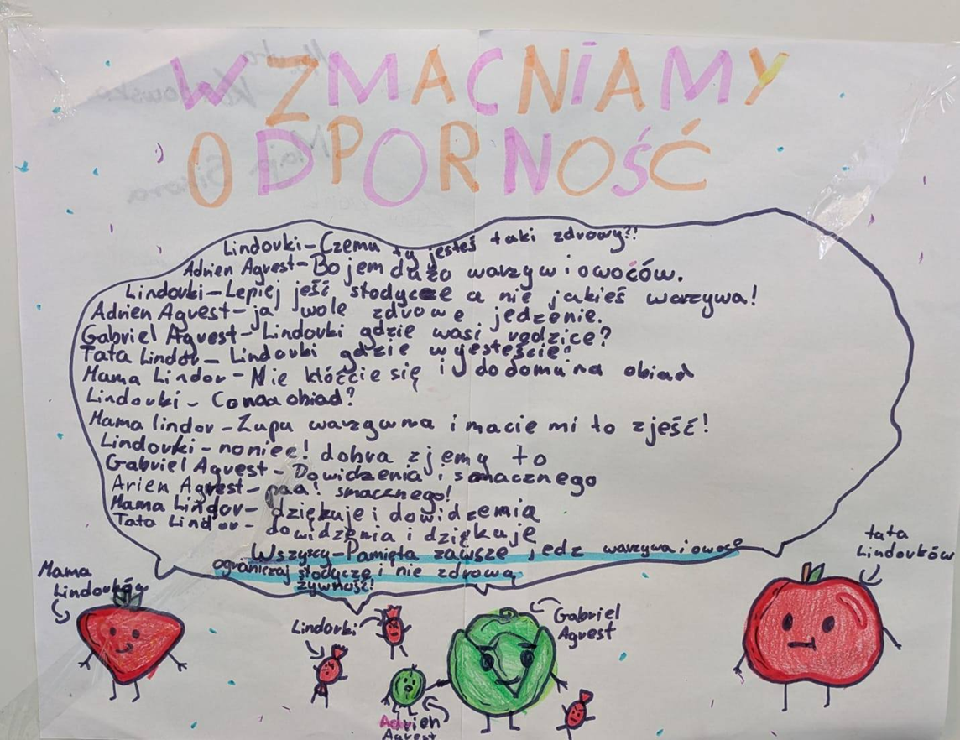 WZMACNIAMY
ODPORNOŚĆ
Lindorki-Czemu ty jesteś taki zdrowy?!
Adrien Agrest-Bo jem dużo warzyw i owoców.
Lindorki-Lepiej jeść słodycze a nie jakieś warzywa!
Adrien Agrest-ja wole zdrowe jedzenie.
Gabriel Agrest-Lindorki gdzie wasi rodzice?
Tata Lindor-Lindorki gdzie wy jesteście?
Mama Lindor-Nie kłóćcie się i do domu na obiad
Lindorki-Co na obiad?
Mama lindor-Zupa warzywna i macie mi to zjeść!
Lindorki-noniee! dobra zjemy to
Gabriel Agrest-Dowidzenia i smacznego
Arien Agrest-paa! smacznego!
Mama Lindor-dziękuje i dowidzenia
Tata Lindor-dowidzenia i dziękuje
Wszyscy-Pamięta zawsze, jedz warzywa i owoce
ograniczaj słodycze i nie zdrową
żywność!
Mama
Lindorków
Lindorki
Adrien
Agrest
Gabriel
Agrest
tata
Lindorków